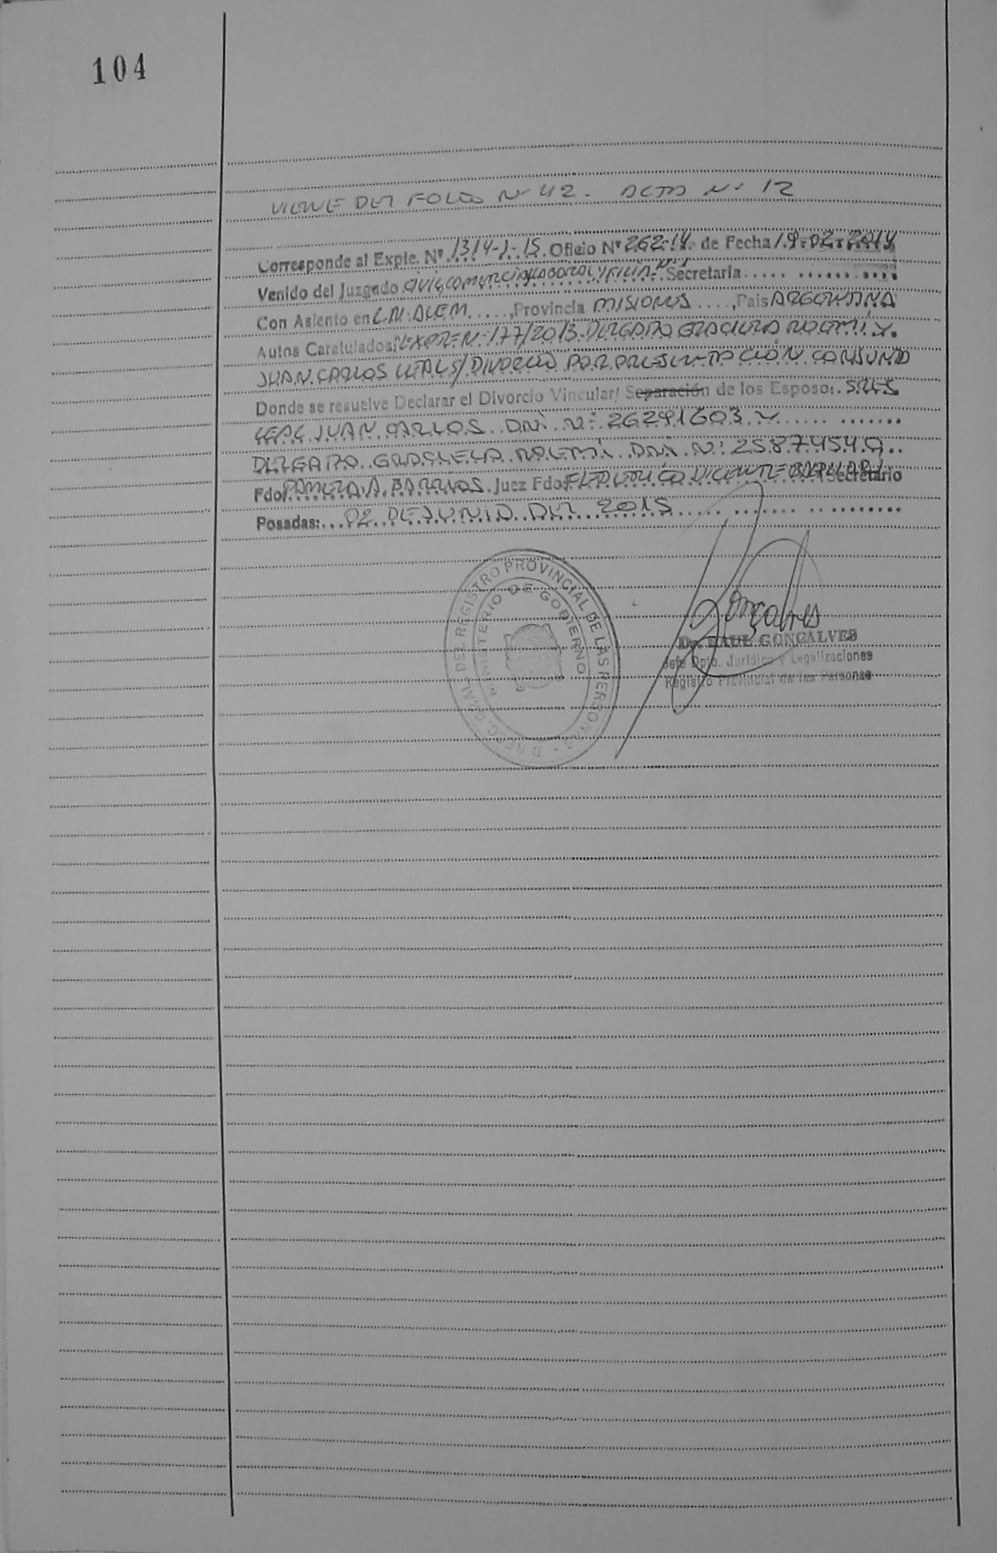 104
VIENE DEL FOLIO Nº 42. ACTA Nº 12
Corresponde al Expte. Nº 1314-J-15. Oficio Nº 262-14. de Fecha 19-02-2014
Venido del Juzgado CIVIL, COMERCIAL, LABORAL Y FLIA. Nº 1 Secretaria
Con Asiento en L.N. ALEM, Provincia MISIONES, Pais ARGENTINA
Autos Caratulados: "EXPTE Nº 177/2013. DELGADO GRACIELA NOEMÍ Y
JUAN CARLOS LEAL S/ DIVORCIO POR PRESENTACIÓN CONJUNTA
Donde se resuelve Declarar el Divorcio Vincular/ Separación de los Esposo: SRES
LEAL JUAN CARLOS DNI. Nº: 26291603 Y
DELGADO GRACIELA NOEMÍ. DNI. Nº: 25.874549
Fdo/ PAMELA A. BARRIOS. Juez Fdo/ VICENTE Secretario
Posadas: 02 DE JUNIO DEL 2015
DIREC. GRAL. DEL REGISTRO PROVINCIAL DE LAS PERSONAS
MINISTERIO DE GOBIERNO
Gonçalves
Dr. RAUL GONCALVES
Jefe Dpto. Jurídico y Legalizaciones
Registro Provincial de las Personas